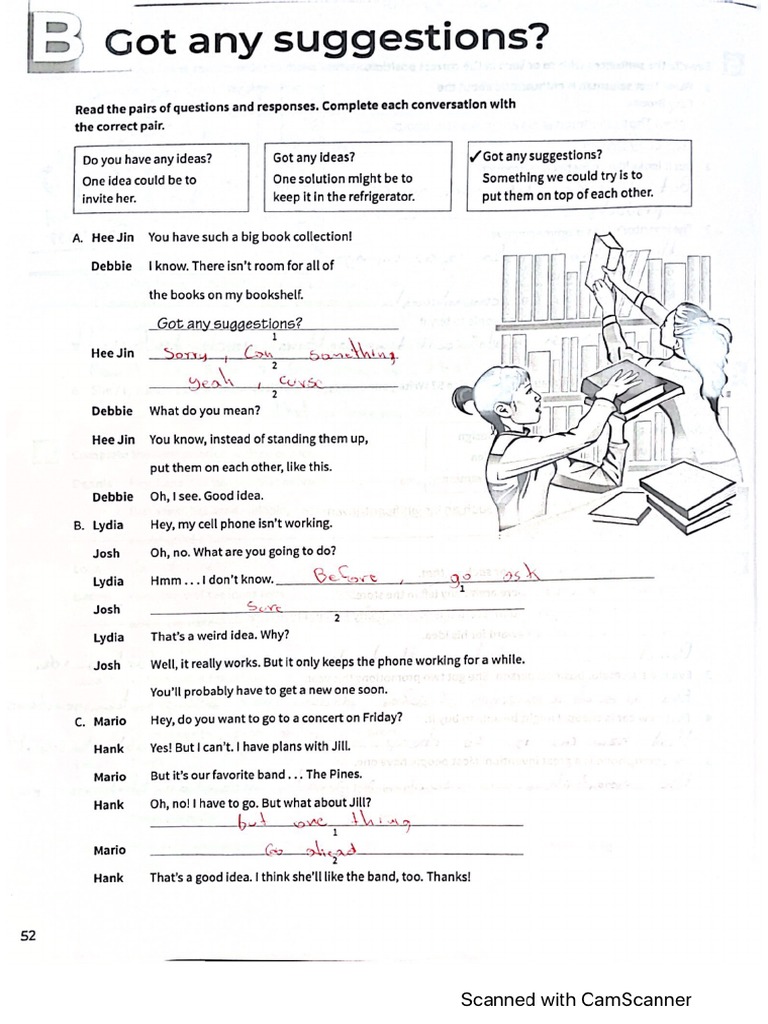 B Got any suggestions?
Read the pairs of questions and responses. Complete each conversation with
the correct pair.
Do you have any ideas?
One idea could be to
invite her.
Got any ideas?
One solution might be to
keep it in the refrigerator.
✓Got any suggestions?
Something we could try is to
put them on top of each other.
A. Hee Jin You have such a big book collection!
Debbie I know. There isn't room for all of
the books on my bookshelf.
Got any suggestions?
1
Hee Jin Sorry, Can something
2
yeah, curse
2
Debbie What do you mean?
Hee Jin You know, instead of standing them up,
put them on each other, like this.
Debbie Oh, I see. Good idea.
B. Lydia Hey, my cell phone isn't working.
Josh Oh, no. What are you going to do?
Lydia Hmm . . . I don't know. Before, go ask
1
Josh Sure
2
Lydia That's a weird idea. Why?
Josh Well, it really works. But it only keeps the phone working for a while.
You'll probably have to get a new one soon.
C. Mario Hey, do you want to go to a concert on Friday?
Hank Yes! But I can't. I have plans with Jill.
Mario But it's our favorite band . . . The Pines.
Hank Oh, no! I have to go. But what about Jill?
but one thing
1
Mario Go ahead
2
Hank That's a good idea. I think she'll like the band, too. Thanks!
52
Scanned with CamScanner